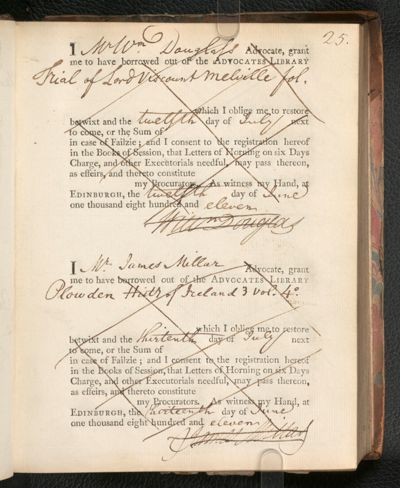 25.
I Mr Wm Douglass Advocate, grant
me to have borrowed out of the ADVOCATES LIBRARY
Trial of Lord Viscount Melville fol.
which I oblige me to restore
betwixt and the twelfth day of July next
to come, or the Sum of
in case of Failzie; and I consent to the registration hereof
in the Books of Session, that Letters of Horning on six Days
Charge, and other Executorials needful, may pass thereon,
as effeirs, and thereto constitute
my Procurators. As witness my Hand, at
EDINBURGH, the twelfth day of June
one thousand eight hundred and eleven
Will m Douglas
I Mr. James Millar Advocate, grant
me to have borrowed out of the ADVOCATES LIBRARY
Plowden Histy of Ireland 3 vol. 4o.
which I oblige me to restore
betwixt and the thirtenth day of July next
to come, or the Sum of
in case of Failzie; and I consent to the registration hereof
in the Books of Session, that Letters of Horning on six Days
Charge, and other Executorials needful, may pass thereon,
as effeirs, and thereto constitute
my Procurators. As witness my Hand, at
EDINBURGH, the thirteenth day of June
one thousand eight hundred and eleven
James Millar